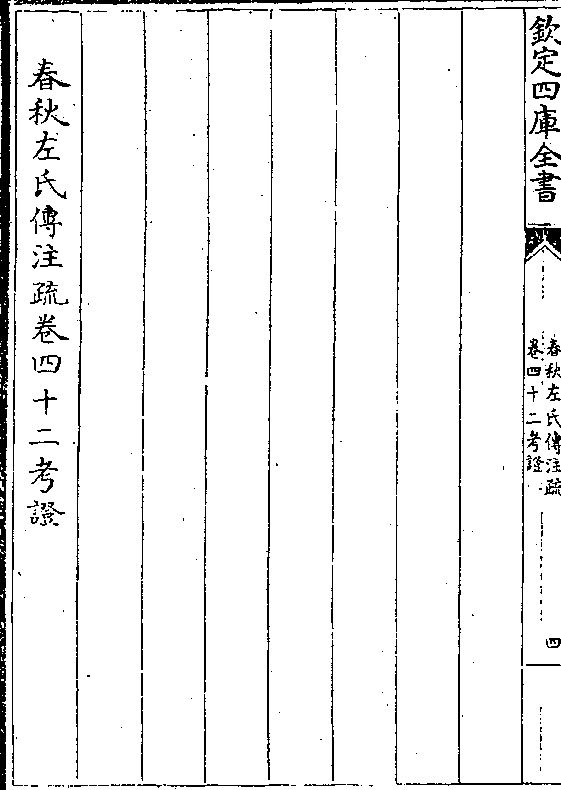 欽定四庫全書
春秋左氏傳注疏
卷四十二考證
四
春秋左氏傳注疏卷四十二考證